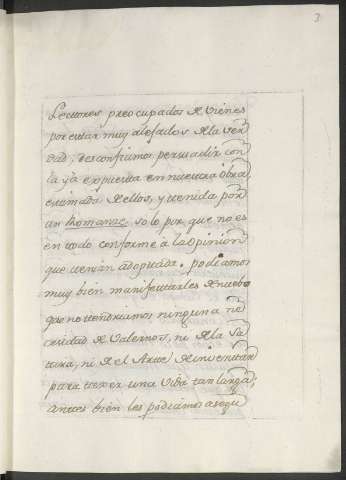 3
Lectores preocupados de Quienes
por estar muy alejados de la ver
dad, desconfiamos persuadir con
la ya expuesta en nuestra obra,
estimada de ellos, y tenida por
un Romanze solo por que no es
en todo conforme a la opinion
que tienen adoptada. podiamos
muy bien manifestarles de nuebo
que no tendriamos ninguna ne
cesidad de Valernos, ni de la Sa
tira, ni de el Arte de inventar
para texer una Vida tan larga,
antes bien les podiamos asegu